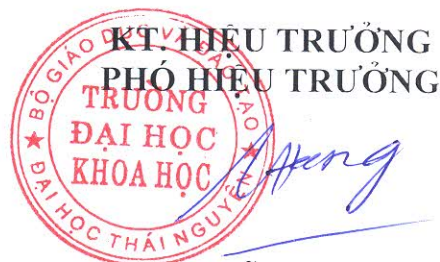 KT. HIỆU TRƯỞNG
PHÓ HIỆU TRƯỞNG
BỘ GIÁO DỤC VÀ ĐÀO TẠO
TRƯỜNG
ĐẠI HỌC
KHOA HỌC
ĐẠI HỌC THÁI NGUYÊN